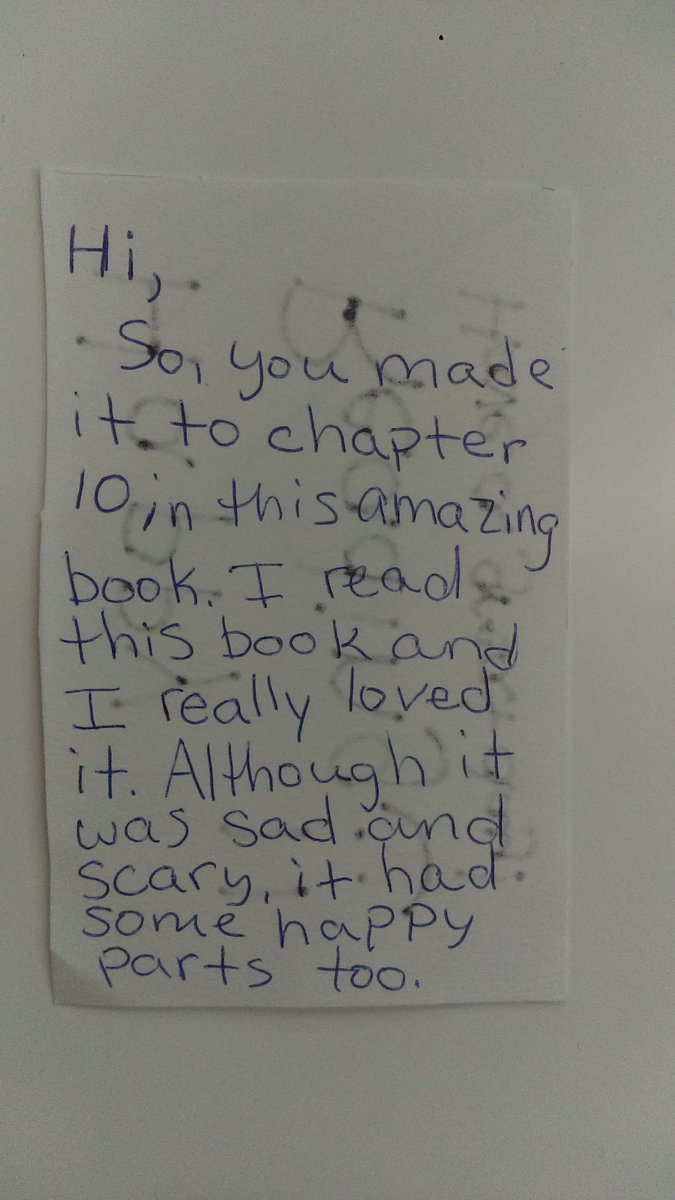 Hi,
So, you made
it to chapter
10 in this amazing
book. I read
this book and
I really loved
it. Although it
was sad and
scary, it had
some happy
parts too.